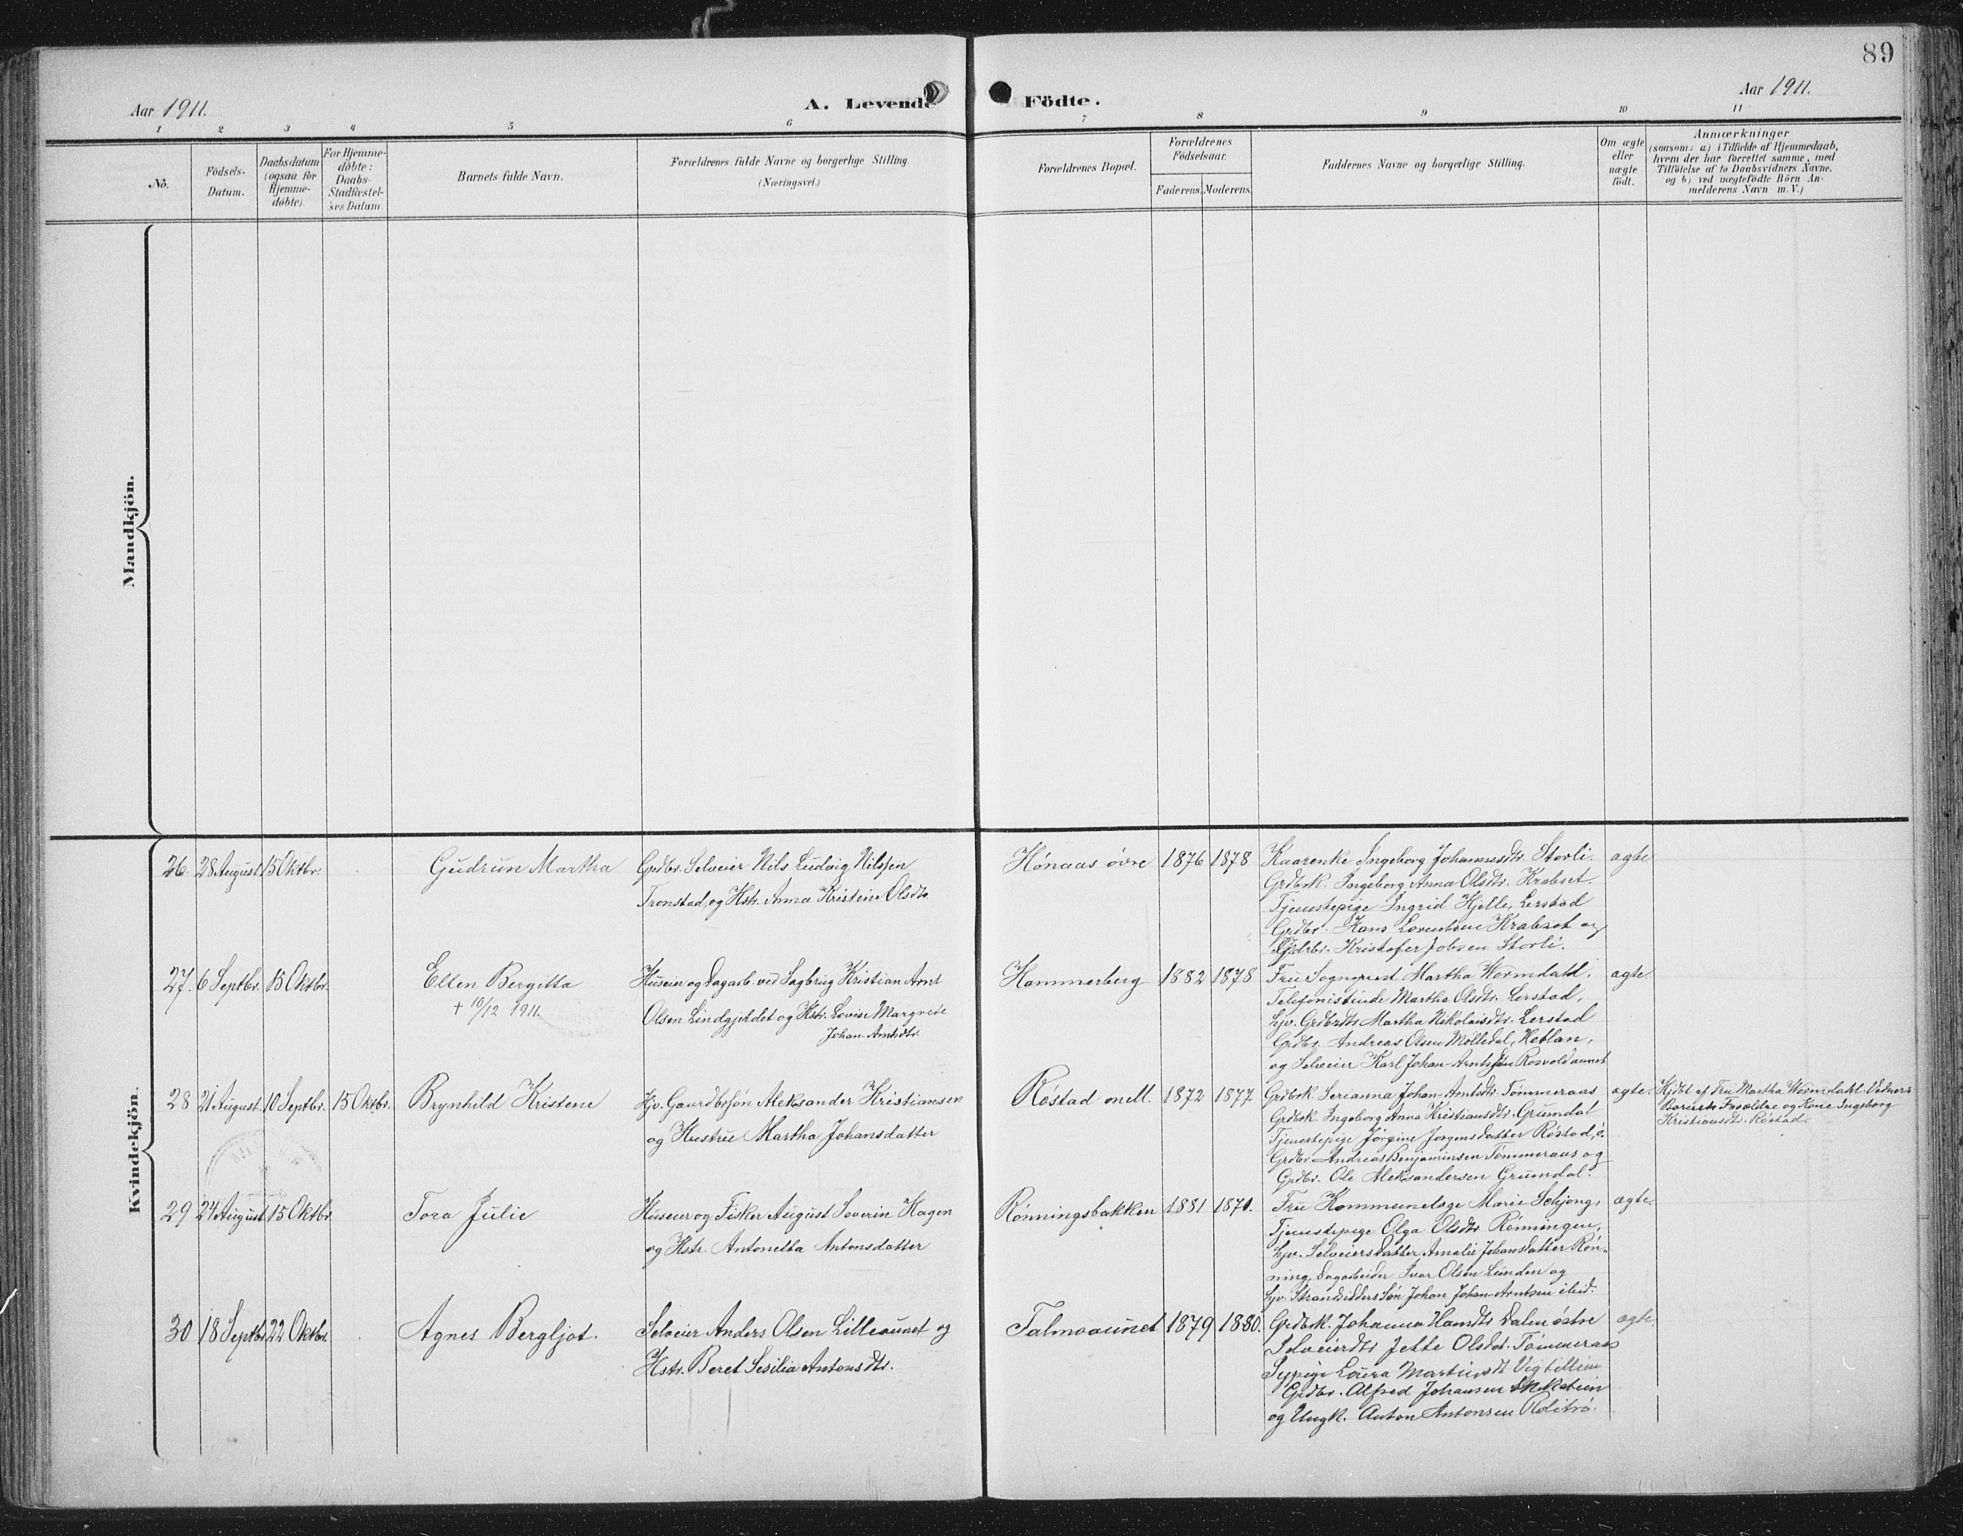 89
Aar 1911.
A. Levende Födte.
Aar 1911.
1 2 3 4 5 6 7 8 9 10 11
No.
Födsels-
Datum.
Daabsdatum
(ogsaa for
Hjemme-
döbte).
For Hjemme-
döbte:
Daabs-
Stadfæstel-
ses Datum.
Barnets fulde Navn.
Forældrenes fulde Navne og borgerlige Stilling.
(Næringsvei.)
Forældrenes Bopæl.
Forældrenes
Födselsaar.
Faderens.
Moderens.
Faddernes Navne og borgerlige Stilling.
Om ægte
eller
uægte
födt.
Anmærkninger
(saasom: a) i Tilfælde af Hjemmedaab,
hvem der har forrettet samme, med
Tilföielse af to Daabsvidners Navne.
og b) ved uægtefödte Börn An-
melderens Navn m. V.)
Mandkjön.
Kvindekjön.
26. 28 August 15 Oktbr. Gudrun Martha
Grdbr. Selveier Nils Ludvig Nilssen
Tronstad, og Hstr. Anna Kristine Olsdtr.
Hónaas óvre 1876 1878
Kaarenke Ingeborg Johannesdtr. Storli.
Grdbrk. Ingeborg Anna Olsdtr. Krabset.
Tjenestepige Ingrid Kjelle, Lerstad
Grdbr. Hans Lorentsen Krabset og
Kristofer Jobsen Storli.
ægte
27. 6 Septbr. 15 Oktbr. Ellen Bergitta
+ 10/12 1911.
Husein og Dagarb. ved Sagbrug Kristian Arnt
Olsen Lindgjeldet og Hstr. Lovise Margrete
Johan-Arntsdtr.
Hammerberg 1882 1878
Fru Sogneprest Martha Wormdahl,
Telefonistinde Martha Olsdtr. Lerstad,
hjv. Grdbrdtr Martha Nikolaisdtr. Lerstad
Grdbr. Andreas Olsen Mölledal, Heblan,
og Selveier Karl Johan-Arntsen Rosvoldaunet
ægte
28 21 August 10 Septbr. 15 Oktbr. Brynhild Kristene
Hjv. Gaardbrsön Aleksander Kristiansen
og Hustru Martha Johansdatter
Róstad mell. 1872 1877
Grdbrk. Serianna Johan-Arntsdtr. Tømmeraas
Grdbrk. Ingeborg Anna Kristiansdtr. Grumdal
Tjenestepige Jørgine Jørgensdatter Róstad, ó.
Grdbr. Andreas Benjaminsen Tømmeraas og
Grdbr. Ole Aleksandersen Grumdal.
ægte.
Hjdbt. af Fru Martha Wormdahl. Vidner:
Barnets Forældre og Kone Ingeborg
Kristiansdtr. Róstad
29 24 August 15 Oktbr. Tora Julie
Husein og Fisker August Severin Hagen
og Hstr. Antonetta Antonsdatter
Rónningsbakken 1881 1871.
Fru Kommunelæge Marie Schjong,
Tjenestepige Olga Olsdtr. Rónningen,
hjv. Selveiersdatter Amalie Johansdatter Rón-
ning, Dagarbeider Ivar Olsen Lunden og
hjv. Strandsidders Sön Johan Johan-Arntsen ibid.
ægte.
30 18 Septbr 22 Oktbr. Agnes Bergljot.
Selveier Anders Olsen Lilleaunet og
Hstr. Beret Sesilia Antonsdtr.
Talmoaunet 1879 1880.
Grdbrk. Johanna Hansdtr Dalen østre
Selveierdtr Jette Olsdtr. Tømmeraas
Sypige Laura Martinsdtr
Grdbr. Alfred Johansen
og Ungk. Anton Antonsen
ægte.